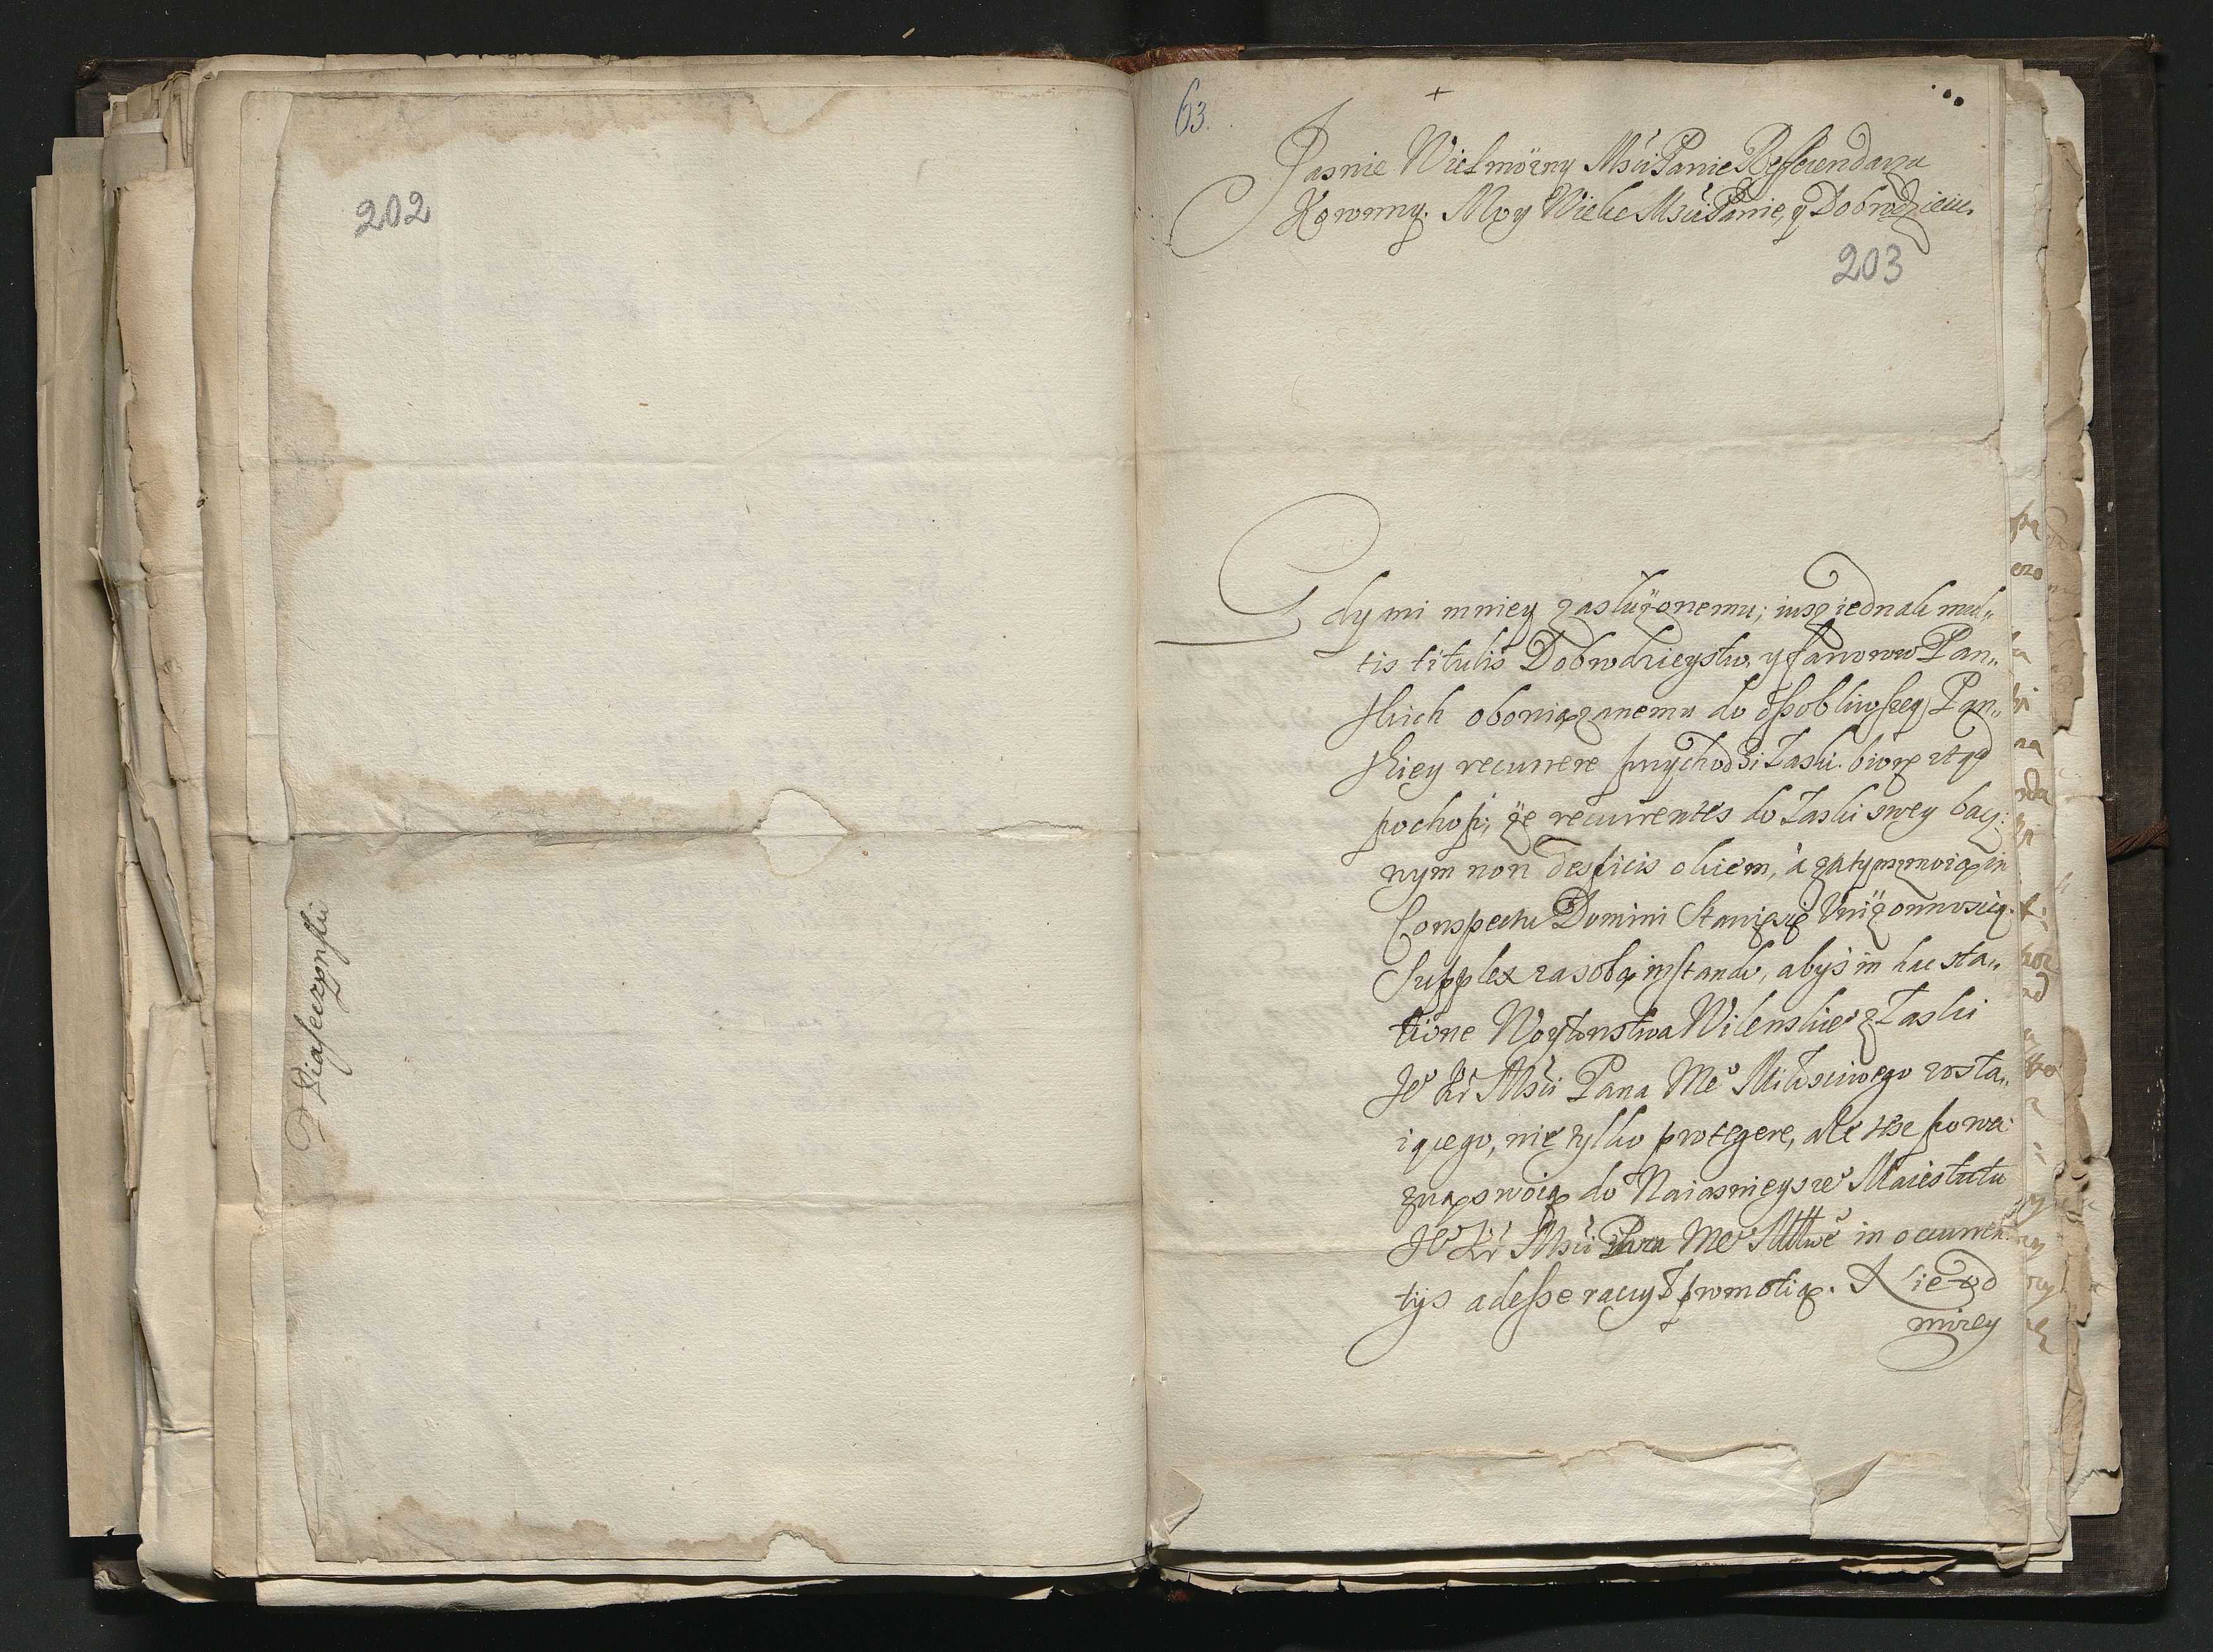 202
Piaseczynski
63.
+
Jasnie Wielmożny Mśći Panie Refferendarzu
Koronny. Moy Wielce Mśći Panie, y Dobrodzieiu.
203
Gdy mi mniey zasłużonemu; iusz iednak mul„
tis titulis Dobrodzieystw, y fauorow Pan„
skich obowiązanemu do osobliwszey Pan„
skiey recurrere przychodzi Łaski. biorę ztąd
pochop; że recurrentes do Łaski swey bacz:
nym non despicis okiem, a zatym moią in
Conspectu Domini Stawiąią Vniżonnoscią
Supplex za sobą instando, abyś in hac sta„
tione Woytowstwa Wilenskie z Łaski
Je° Kr Mśći Pana Me° Miłosciwego zosta„
iącego, nie tylko protegere, ale też powa
żną swoią do Naiasnieysze° Maiestatu
Je° Kr Mśći Pana Me° Młłwe° in occurren
tijs adesse raczył promotią. A ie
mizey